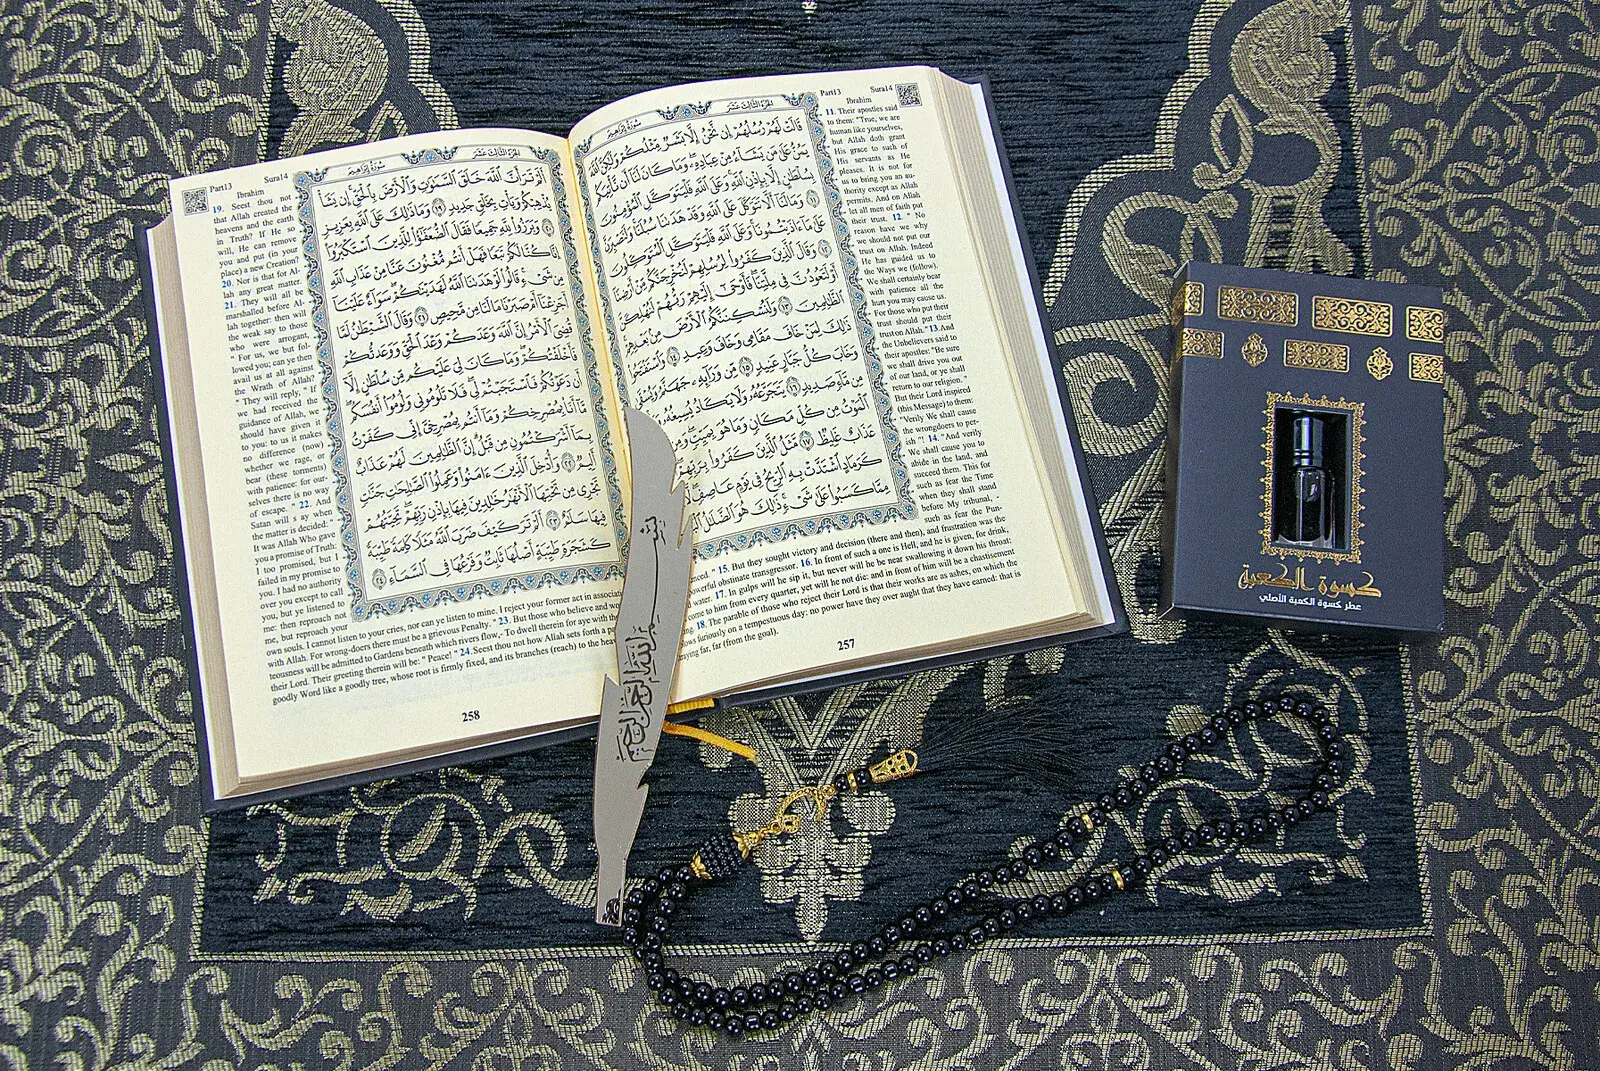 الجزء الثالث عشر سورة إبراهيم
قَالَتْ لَهُمْ رُسُلُهُمْ إِن نَّحْنُ إِلَّا بَشَرٌ مِّثْلُكُمْ وَلَٰكِنَّ اللَّهَ
يَمُنُّ عَلَىٰ مَن يَشَاءُ مِنْ عِبَادِهِ وَمَا كَانَ لَنَا أَن نَّأْتِيَكُم
بِسُلْطَانٍ إِلَّا بِإِذْنِ اللَّهِ وَعَلَى اللَّهِ فَلْيَتَوَكَّلِ الْمُؤْمِنُونَ
١١ وَمَا لَنَا أَلَّا نَتَوَكَّلَ عَلَى اللَّهِ وَقَدْ هَدَانَا سُبُلَنَا وَلَنَصْبِرَنَّ
عَلَىٰ مَا آذَيْتُمُونَا وَعَلَى اللَّهِ فَلْيَتَوَكَّلِ الْمُتَوَكِّلُونَ
١٢ وَقَالَ الَّذِينَ كَفَرُوا لِرُسُلِهِمْ لَنُخْرِجَنَّكُم مِّنْ أَرْضِنَا
أَوْ لَتَعُودُنَّ فِي مِلَّتِنَا فَأَوْحَىٰ إِلَيْهِمْ رَبُّهُمْ لَنُهْلِكَنَّ
الظَّالِمِينَ ١٣ وَلَنُسْكِنَنَّكُمُ الْأَرْضَ مِن بَعْدِهِمْ
ذَٰلِكَ لِمَنْ خَافَ مَقَامِي وَخَافَ وَعِيدِ ١٤ وَاسْتَفْتَحُوا
وَخَابَ كُلُّ جَبَّارٍ عَنِيدٍ ١٥ مِّن وَرَائِهِ جَهَنَّمُ وَيُسْقَىٰ
مِن مَّاءٍ صَدِيدٍ ١٦ يَتَجَرَّعُهُ وَلَا يَكَادُ يُسِيغُهُ
الْمَوْتُ مِن كُلِّ مَكَانٍ وَمَا هُوَ بِمَيِّتٍ وَمِن
عَذَابٌ غَلِيظٌ ١٧ مَّثَلُ الَّذِينَ كَفَرُوا بِرَبِّهِمْ
كَرَمَادٍ اشْتَدَّتْ بِهِ الرِّيحُ فِي يَوْمٍ عَاصِفٍ
مِمَّا كَسَبُوا عَلَىٰ شَيْءٍ ذَٰلِكَ هُوَ الضَّلَالُ
Part13 Sura14
Ibrahim
11. Their apostles said
to them: "True, we are
human like yourselves,
but Allah doth grant
His grace to such of
His servants as He
pleases. It is not for
us to bring you an au-
thority except as Allah
permits. And on Allah
let all men of faith put
their trust. 12. " No
reason have we why
we should not put our
trust on Allah. Indeed
He has guided us to
the Ways we (follow).
We shall certainly bear
with patience all the
hurt you may cause us.
For those who put their
trust should put their
trust on Allah." 13. And
the Unbelievers said to
their apostles: "Be sure
we shall drive you out
of our land, or ye shall
return to our religion. "
But their Lord inspired
(this Message) to them:
"Verily We shall cause
the wrongdoers to per-
ish "! 14. "And verily
We shall cause you to
abide in the land, and
succeed them. This for
such as fear the Time
when they shall stand
before My tribunal, -
such as fear the Pun-
" 15. But they sought victory and decision (there and then), and frustration was the
powerful obstinate transgressor. 16. In front of such a one is Hell, and he is given, for drink,
water. 17. In gulps will he sip it, but never will he be near swallowing it down his throat:
come to him from every quarter, yet will he not die: and in front of him will be a chastisement
18. The parable of those who reject their Lord is that their works are as ashes, on which the
furiously on a tempestuous day: no power have they over aught that they have earned: that is
straying far, far (from the goal).
257
الجزء الثالث عشر سورة إبراهيم
أَلَمْ تَرَ أَنَّ اللَّهَ خَلَقَ السَّمَاوَاتِ وَالْأَرْضَ بِالْحَقِّ إِن يَشَأْ
يُذْهِبْكُمْ وَيَأْتِ بِخَلْقٍ جَدِيدٍ ١٩ وَمَا ذَٰلِكَ عَلَى اللَّهِ بِعَزِيزٍ
٢٠ وَبَرَزُوا لِلَّهِ جَمِيعًا فَقَالَ الضُّعَفَاءُ لِلَّذِينَ اسْتَكْبَرُوا
إِنَّا كُنَّا لَكُمْ تَبَعًا فَهَلْ أَنتُم مُّغْنُونَ عَنَّا مِنْ عَذَابِ اللَّهِ
مِن شَيْءٍ قَالُوا لَوْ هَدَانَا اللَّهُ لَهَدَيْنَاكُمْ سَوَاءٌ عَلَيْنَا
أَجَزِعْنَا أَمْ صَبَرْنَا مَا لَنَا مِن مَّحِيصٍ ٢١ وَقَالَ الشَّيْطَانُ لَمَّا
قُضِيَ الْأَمْرُ إِنَّ اللَّهَ وَعَدَكُمْ وَعْدَ الْحَقِّ وَوَعَدتُّكُمْ
فَأَخْلَفْتُكُمْ وَمَا كَانَ لِيَ عَلَيْكُم مِّن سُلْطَانٍ إِلَّا
أَن دَعَوْتُكُمْ فَاسْتَجَبْتُمْ لِي فَلَا تَلُومُونِي وَلُومُوا أَنفُسَكُم
مَّا أَنَا بِمُصْرِخِكُمْ وَمَا أَنتُم بِمُصْرِخِيَّ إِنِّي كَفَرْتُ
بِمَا أَشْرَكْتُمُونِ مِن قَبْلُ إِنَّ الظَّالِمِينَ لَهُمْ عَذَابٌ
أَلِيمٌ ٢٢ وَأُدْخِلَ الَّذِينَ آمَنُوا وَعَمِلُوا الصَّالِحَاتِ جَنَّاتٍ
تَجْرِي مِن تَحْتِهَا الْأَنْهَارُ خَالِدِينَ فِيهَا بِإِذْنِ رَبِّهِمْ تَحِيَّتُهُمْ
فِيهَا سَلَامٌ ٢٣ أَلَمْ تَرَ كَيْفَ ضَرَبَ اللَّهُ مَثَلًا كَلِمَةً طَيِّبَةً
كَشَجَرَةٍ طَيِّبَةٍ أَصْلُهَا ثَابِتٌ وَفَرْعُهَا فِي السَّمَاءِ ٢٤
Part13 Sura14
Ibrahim
19. Seest thou not
that Allah created the
heavens and the earth
in Truth? If He so
will, He can remove
you and put (in your
place) a new Creation?
20. Nor is that for Al-
lah any great matter.
21. They will all be
marshalled before Al-
lah together: then will
the weak say to those
who were arrogant,
" For us, we but fol-
lowed you; can ye then
avail us at all against
the Wrath of Allah?
" They will reply, " If
we had received the
guidance of Allah, we
should have given it
to you: to us it makes
no difference (now)
whether we rage, or
bear (these torments)
with patience: for our-
selves there is no way
of escape. " 22. And
Satan will s ay when
the matter is decided: "
It was Allah Who gave
you a promise of Truth:
I too promised, but I
failed in my promise to
you. I had no authority
over you except to call
you, but ye listened to
me: then reproach not
me, but reproach your
own souls. I cannot listen to your cries, nor can ye listen to mine. I reject your former act in associat
with Allah. For wrong-doers there must be a grievous Penalty. " 23. But those who believe and wo
teousness will be admitted to Gardens beneath which rivers flow,- To dwell therein for aye with th
their Lord. Their greeting therein will be: " Peace! " 24. Seest thou not how Allah sets forth a p
goodly Word like a goodly tree, whose root is firmly fixed, and its branches (reach) to the hea
258
بسم الله الرحمن الرحيم
كسوة الكعبة
عطر كسوة الكعبة الأصلي